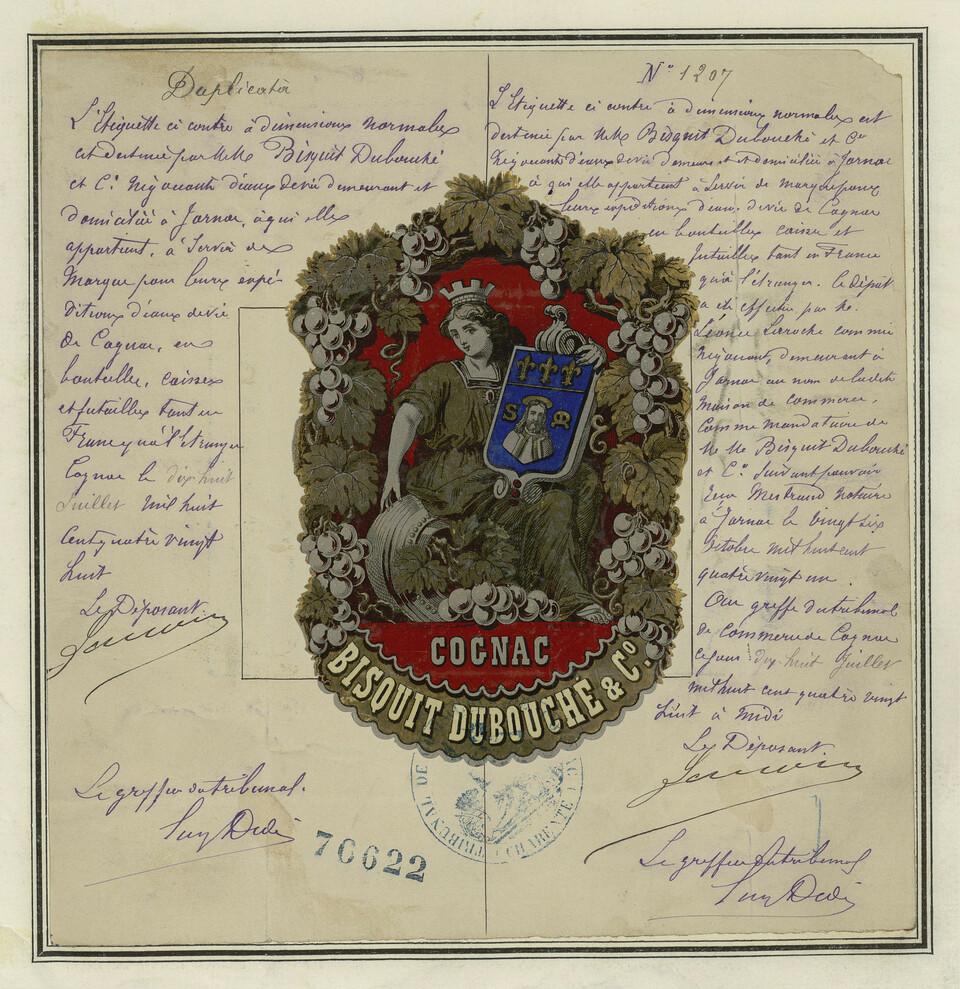 Duplicata
L'Etiquette ci contre à dimensions normales
est destinée par MM. Bisquit Dubouché
et Cie. Négociants d'eaux de vie demeurant et
domiciliés à Jarnac, à qui elle
appartient, à Servir de
Marque pour leurs expé-
ditions d'eaux de vie
de Cognac, en
bouteilles, caisses
et futailles tant en
France qu'à l'étranger
Cognac le dix huit
Juillet mil huit
cent quatre vingt
huit
Le Déposant
Le greffier du tribunal.
76622
N° 1207
L'Etiquette ci contre à dimensions normales est
destinée par MM. Bisquit Dubouché et Cie
Négociants d'eaux de vie demeurant et domiciliés à Jarnac
à qui elle appartient à Servir de marque pour
leurs expéditions d'eaux de vie de Cognac
en bouteilles caisses et
futailles tant en France
qu'à l'étranger. Le dépôt
a été effectué par M.
Léonce Laroche commis
Négociant, demeurant à
Jarnac au nom de la dite
Maison de commerce,
Comme mandataire de
MM. Bisquit Dubouché
et Cie. Suivant pouvoir
notaire
à Jarnac le vingt six
Octobre mil huit cent
quatre vingt un.
Au greffe du tribunal
de commerce de Cognac
ce jour dix-huit Juillet
mil huit cent quatre vingt
huit à midi
Le Déposant
Le greffier du tribunal
S M
COGNAC
BISQUIT DUBOUCHÉ & Co.
TRIBUNAL DE
CHARENTE